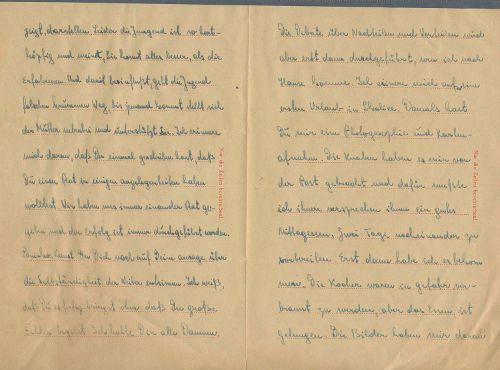 zeigt, darstellen. Leider die Jungend ist so hart-
köpfig und meint, sie kennt alles besser, als die
Erfahrenen. Und damit beeinflußt, geht die Jugend
falschen krummen Weg, bis jemand kommt stellt sich
der Mutter und unterstützt Sie. Ich erinnere
mich daran, daß Du einmal geschrieben hast, daß
Du einen Rat in einigen angelegenheiten haben
wolltest. Wir haben uns immer einander Rat ge-
geben und der Erfolg ist immer durchgeführt worden.
kannst Du Dich noch auf Deine aussage über
die Selbständigkeit der Weiber entsinnen. Ich weiß,
daß Du es fertig bringst aber daß Du große
begehst. Ich hatte Dir alle Dummen.
Die Debate über Nachteilen und Vorteilen wird
aber erst dann durchgeführt, wenn ich nach
Hause komme. Ich erinere mich auf eine
ersten Urlaub in. Damals hast
Du mir eine Photographie und Karten
. Die Knaben haben es mir von
der Post gebracht und dafür mußte
ich ihnen versprechen ihnen ein gutes
Mittagessen. Zwei Tage nacheinander zu
vorbereiten. Erst dann habe ich es bekom
men. Die Kocher waren in gefahr ver-
brannt zu werden, aber das Essen ist
gelungen. Die Bilder haben mir darauf